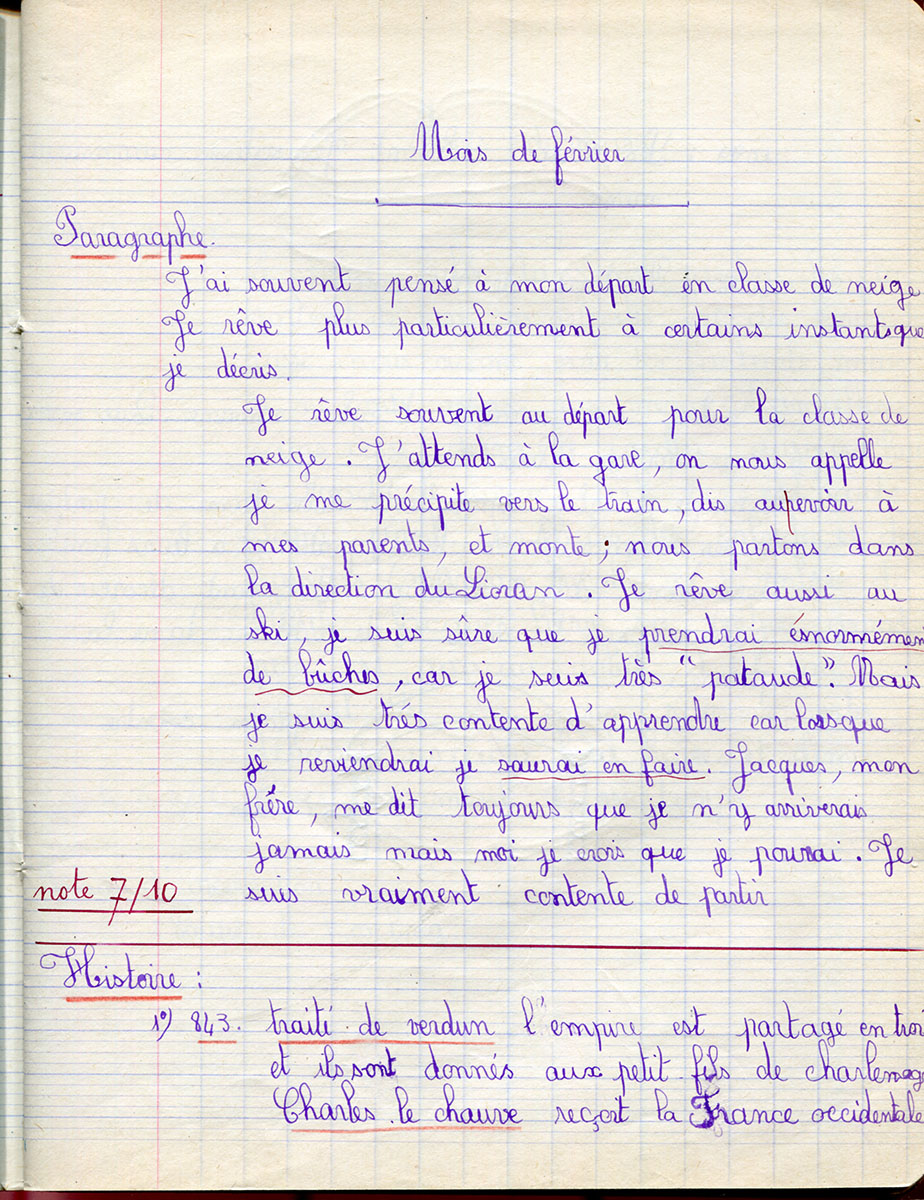 Mois de février
Paragraphe.
J'ai souvent pensé à mon départ en classe de neige
Je rêve plus particulièrement à certains instants que
je décris.
Je rêve souvent au départ pour la classe de
neige. J'attends à la gare, on nous appelle
je me précipite vers le train, dis aurevoir à
mes parents, et monte ; nous partons dans
la direction du Lioran. Je rêve aussi au
ski, je suis sûre que je prendrai énormémen
de bûches, car je suis très "pataude". Mais
je suis trés contente d'apprendre car lorsque
je reviendrai je saurai en faire. Jacques, mon
frère, me dit toujours que je n'y arriverais
jamais mais moi je crois que je pourrai. Je
note 7/10 suis vraiment contente de partir
Histoire :
1º) 843. traité de verdun l'empire est partagé en troi
et ils sont donnés aux petit fils de charlemag
Charles le chauve reçoit la France occidentale